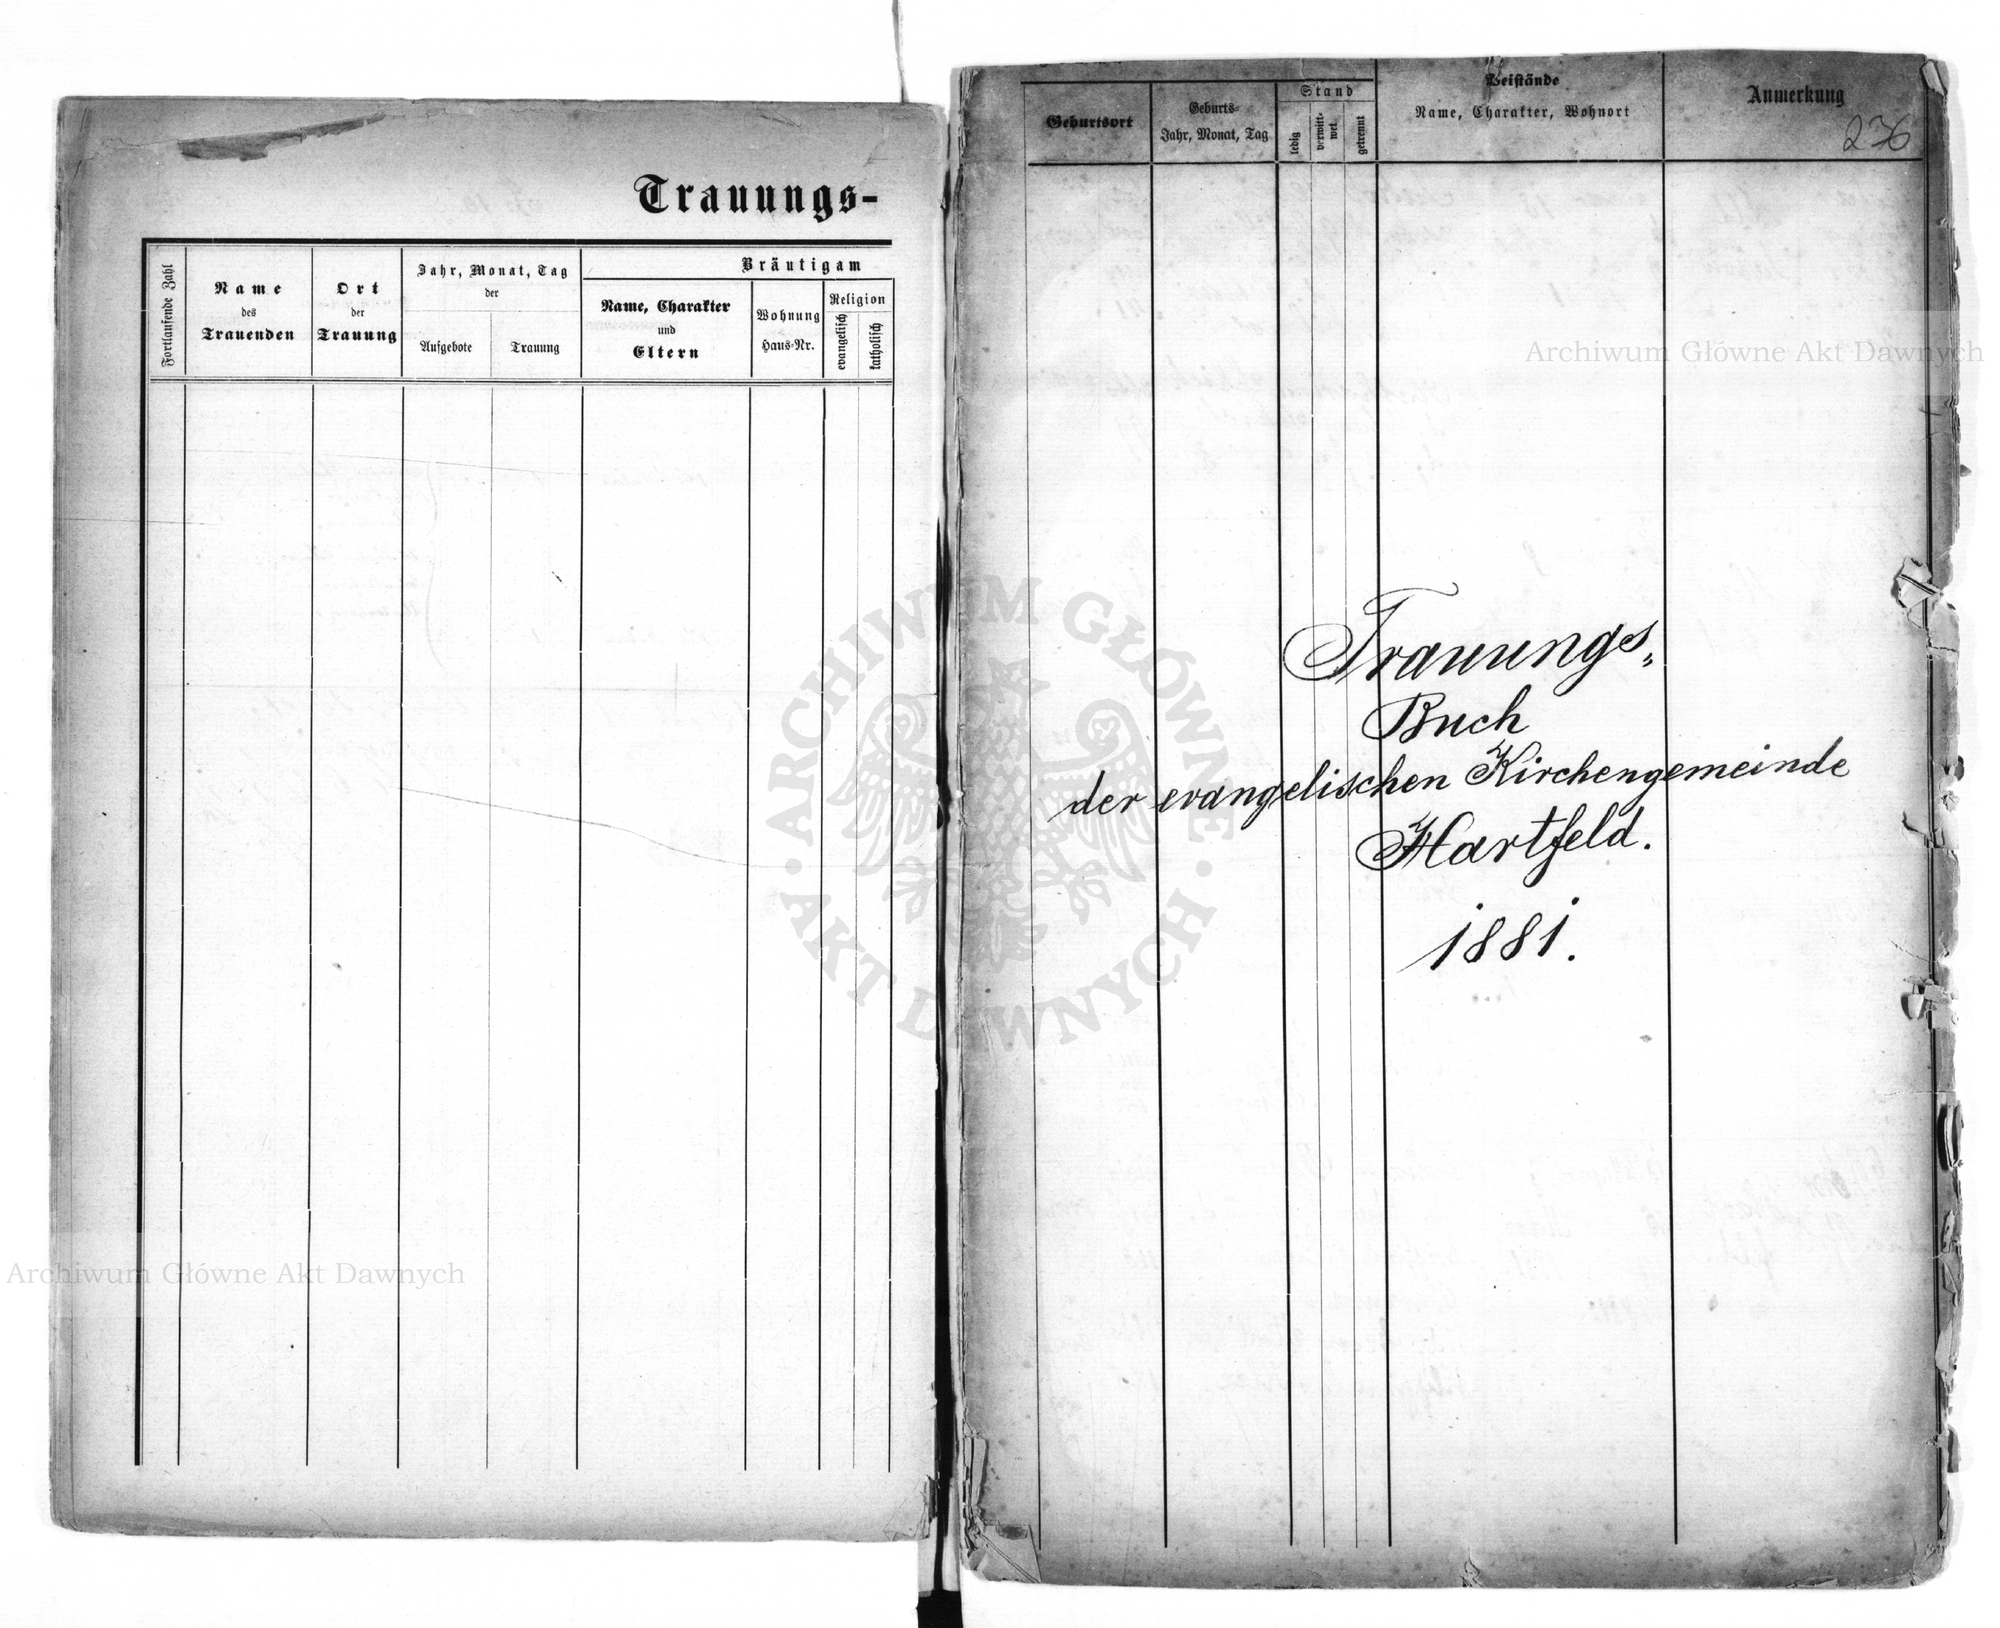 Trauungs-
Fortlaufende Zahl
Name
des
Trauenden
Ort
der
Trauung
Jahr, Monat, Tag
der
Aufgebote
Trauung
Bräutigam
Name, Charakter
und
Eltern
Wohnung
Haus-Nr.
Religion
evangelisch
katholisch
Geburtsort
Geburts-
Jahr, Monat, Tag
Stand
ledig
verwitt-
wet
getrennt
Beistände
Name, Charakter, Wohnort
Anmerkung
236
Trauungs„
Buch
der evangelischen Kirchengemeinde
Hartfeld.
1881.
Archiwum Główne Akt Dawnych
Archiwum Główne Akt Dawnych
ARCHIWUM GŁÓWNE
· AKT DAWNYCH ·